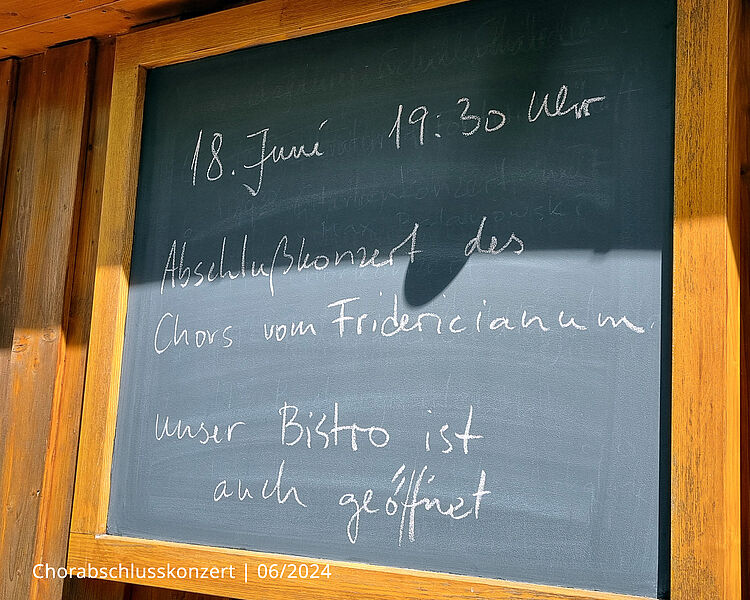 18. Juni 19:30 Uhr
Abschlußkonzert des
Chors vom Fridericianum.
unser Bistro ist
auch geöffnet
Chorabschlusskonzert | 06/2024